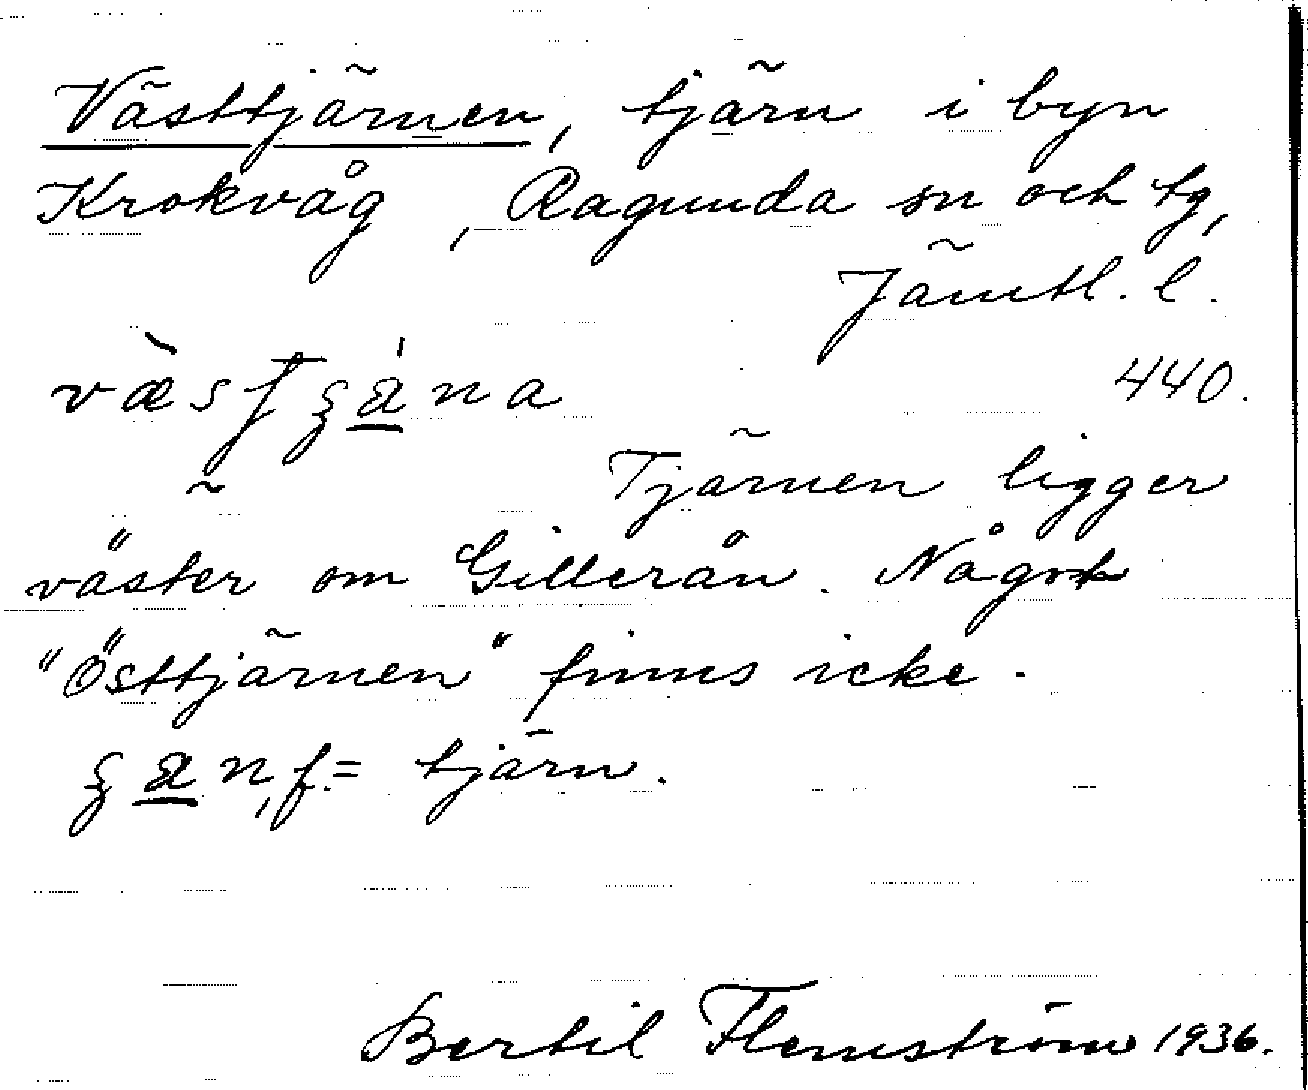 Västtjärnen, tjärn i byn
Krokvåg, Ragunda sn och tg,
Jämtl. l.
440.
Tjärnen ligger
väster om Gillerån. Något
"Östtjärnen" finns icke.
f. = tjärn.
Bertil Flemström 1936.